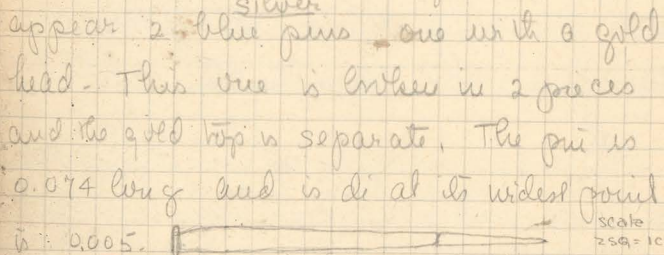 silver
appear 2 blue pins one with a gold
head. This one is broken in 2 pieces
and the gold top is separate. The pin is
0.074 long and is di at its widest point
is 0.005.
scale
2SQ = 1C